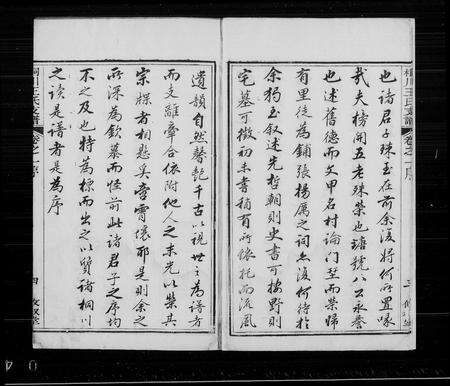 也諸君子珠玉在前余復將何所置喙
哉夫榜開五老殊榮也璿號八公永譽
也述舊德而文甲名村論門望而榮歸
有里徒為鋪張揚厲之詞亦復何待於
余獨至叙述先哲朝則史書可按野則
宅墓可徵初未嘗稍有所依托而流風
遺韻自然馨乾千古以視世之為譜者
而支離牽合依附他人之末光以榮其
宗祼者相懸奚啻霄儴耶是則余之
所深為欽慕而怪前此諸君子之序均
不之及也特為標而出之以質諸桐川
之讀是譜者是為序
桐川王氏支譜 卷之一序
四
三